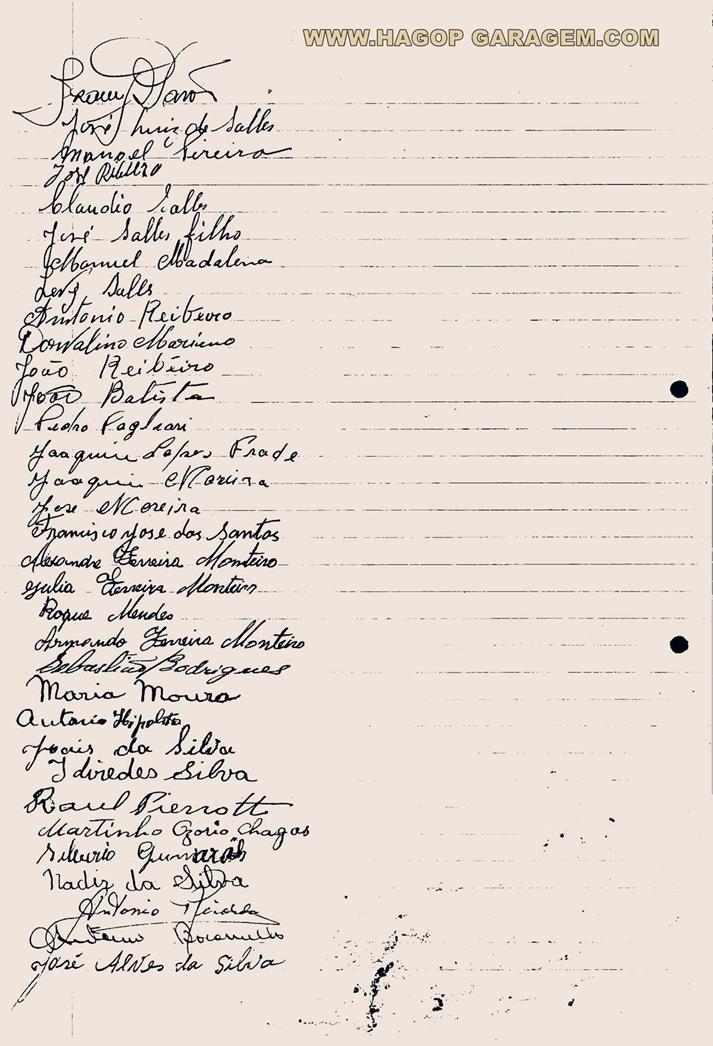 WWW.HAGOP GARAGEM.COM
José Luiz de Salles
Manoel Pireira
José Ribeiro
Claudio Salles
José Salles filho
Manuel Madalena
Salles
Antonio Reibeiro
Dorvalino Mariano
João Reibeiro
João Batista
Pedro Pagliari
Joaquim Lopes Prade
Joaquin Moreira
Jose Moreira
Francisco Jose dos Santos
Alexandre Ferreira Monteiro
Julia Ferreira Monteiro
Roque Mendes
Armando Ferreira Monteiro
Sebastião Rodrigues
Maria Moura
Antonio Hipolito
da Silva
Idiredes Silva
Raul Pierrotti
Martinho Ozorio Chagas
Silverio
Nadiz da Silva
Antonio
José Alves da Silva